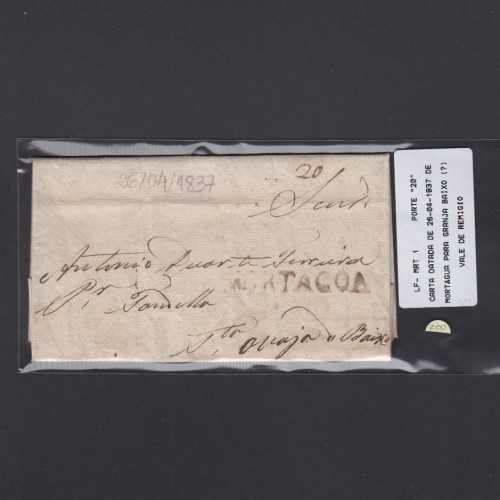 26/04/1837
20
Antonio Duarte Ferreira
MORTAGOA
Pr Tondella
Sto Ovaja d Baixo
LF- MRT 1 PORTE "20"
CARTA DATADA DE 26-04-1837 DE
MORTAGUA PARA GRANJA BAIXO (?)
VALE DE REMIGIO
200